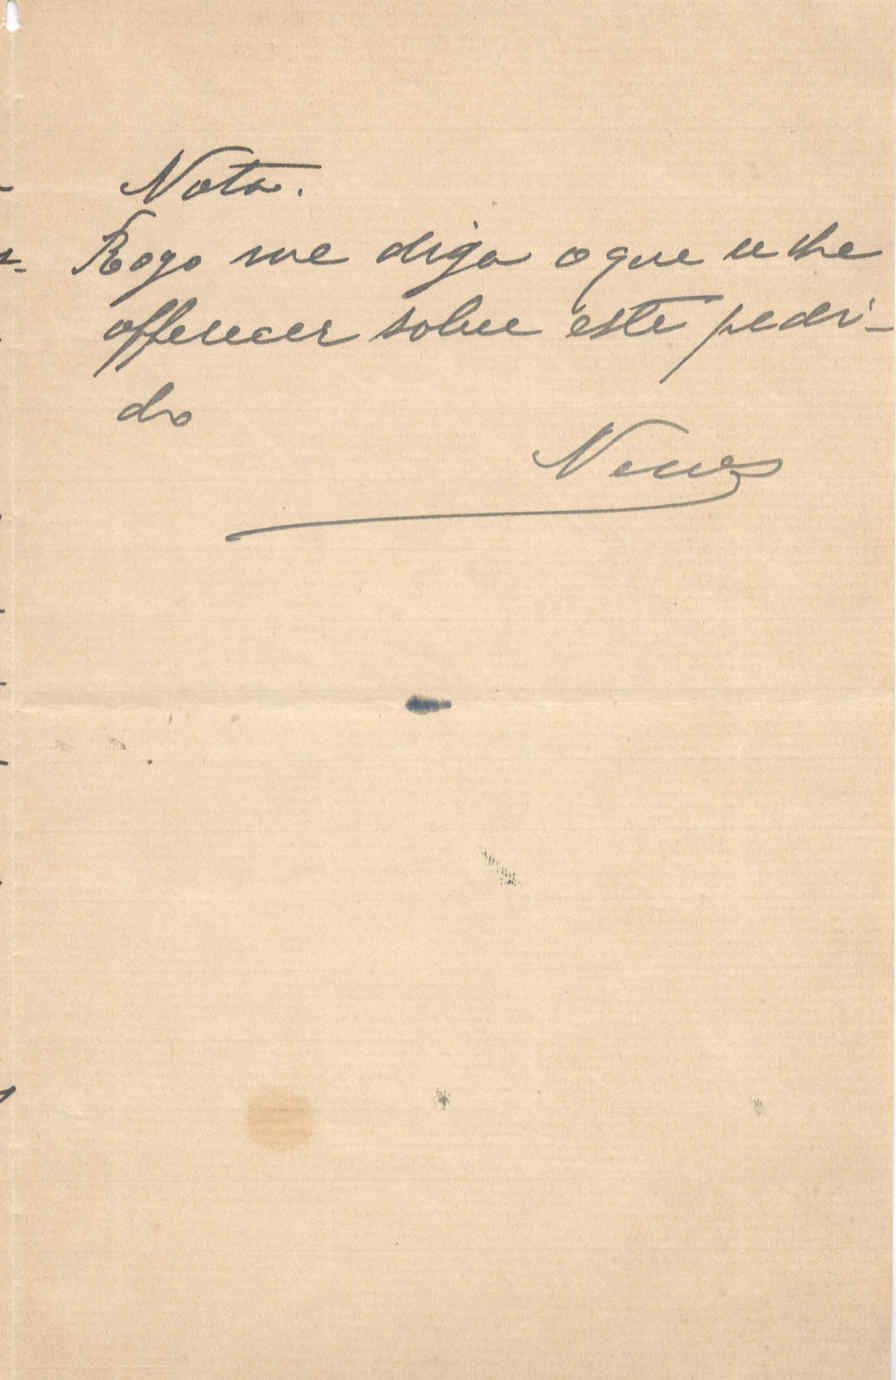 Nota.
Rogo me diga o que se lhe
offerecer sobre este pedi-
do
Neves